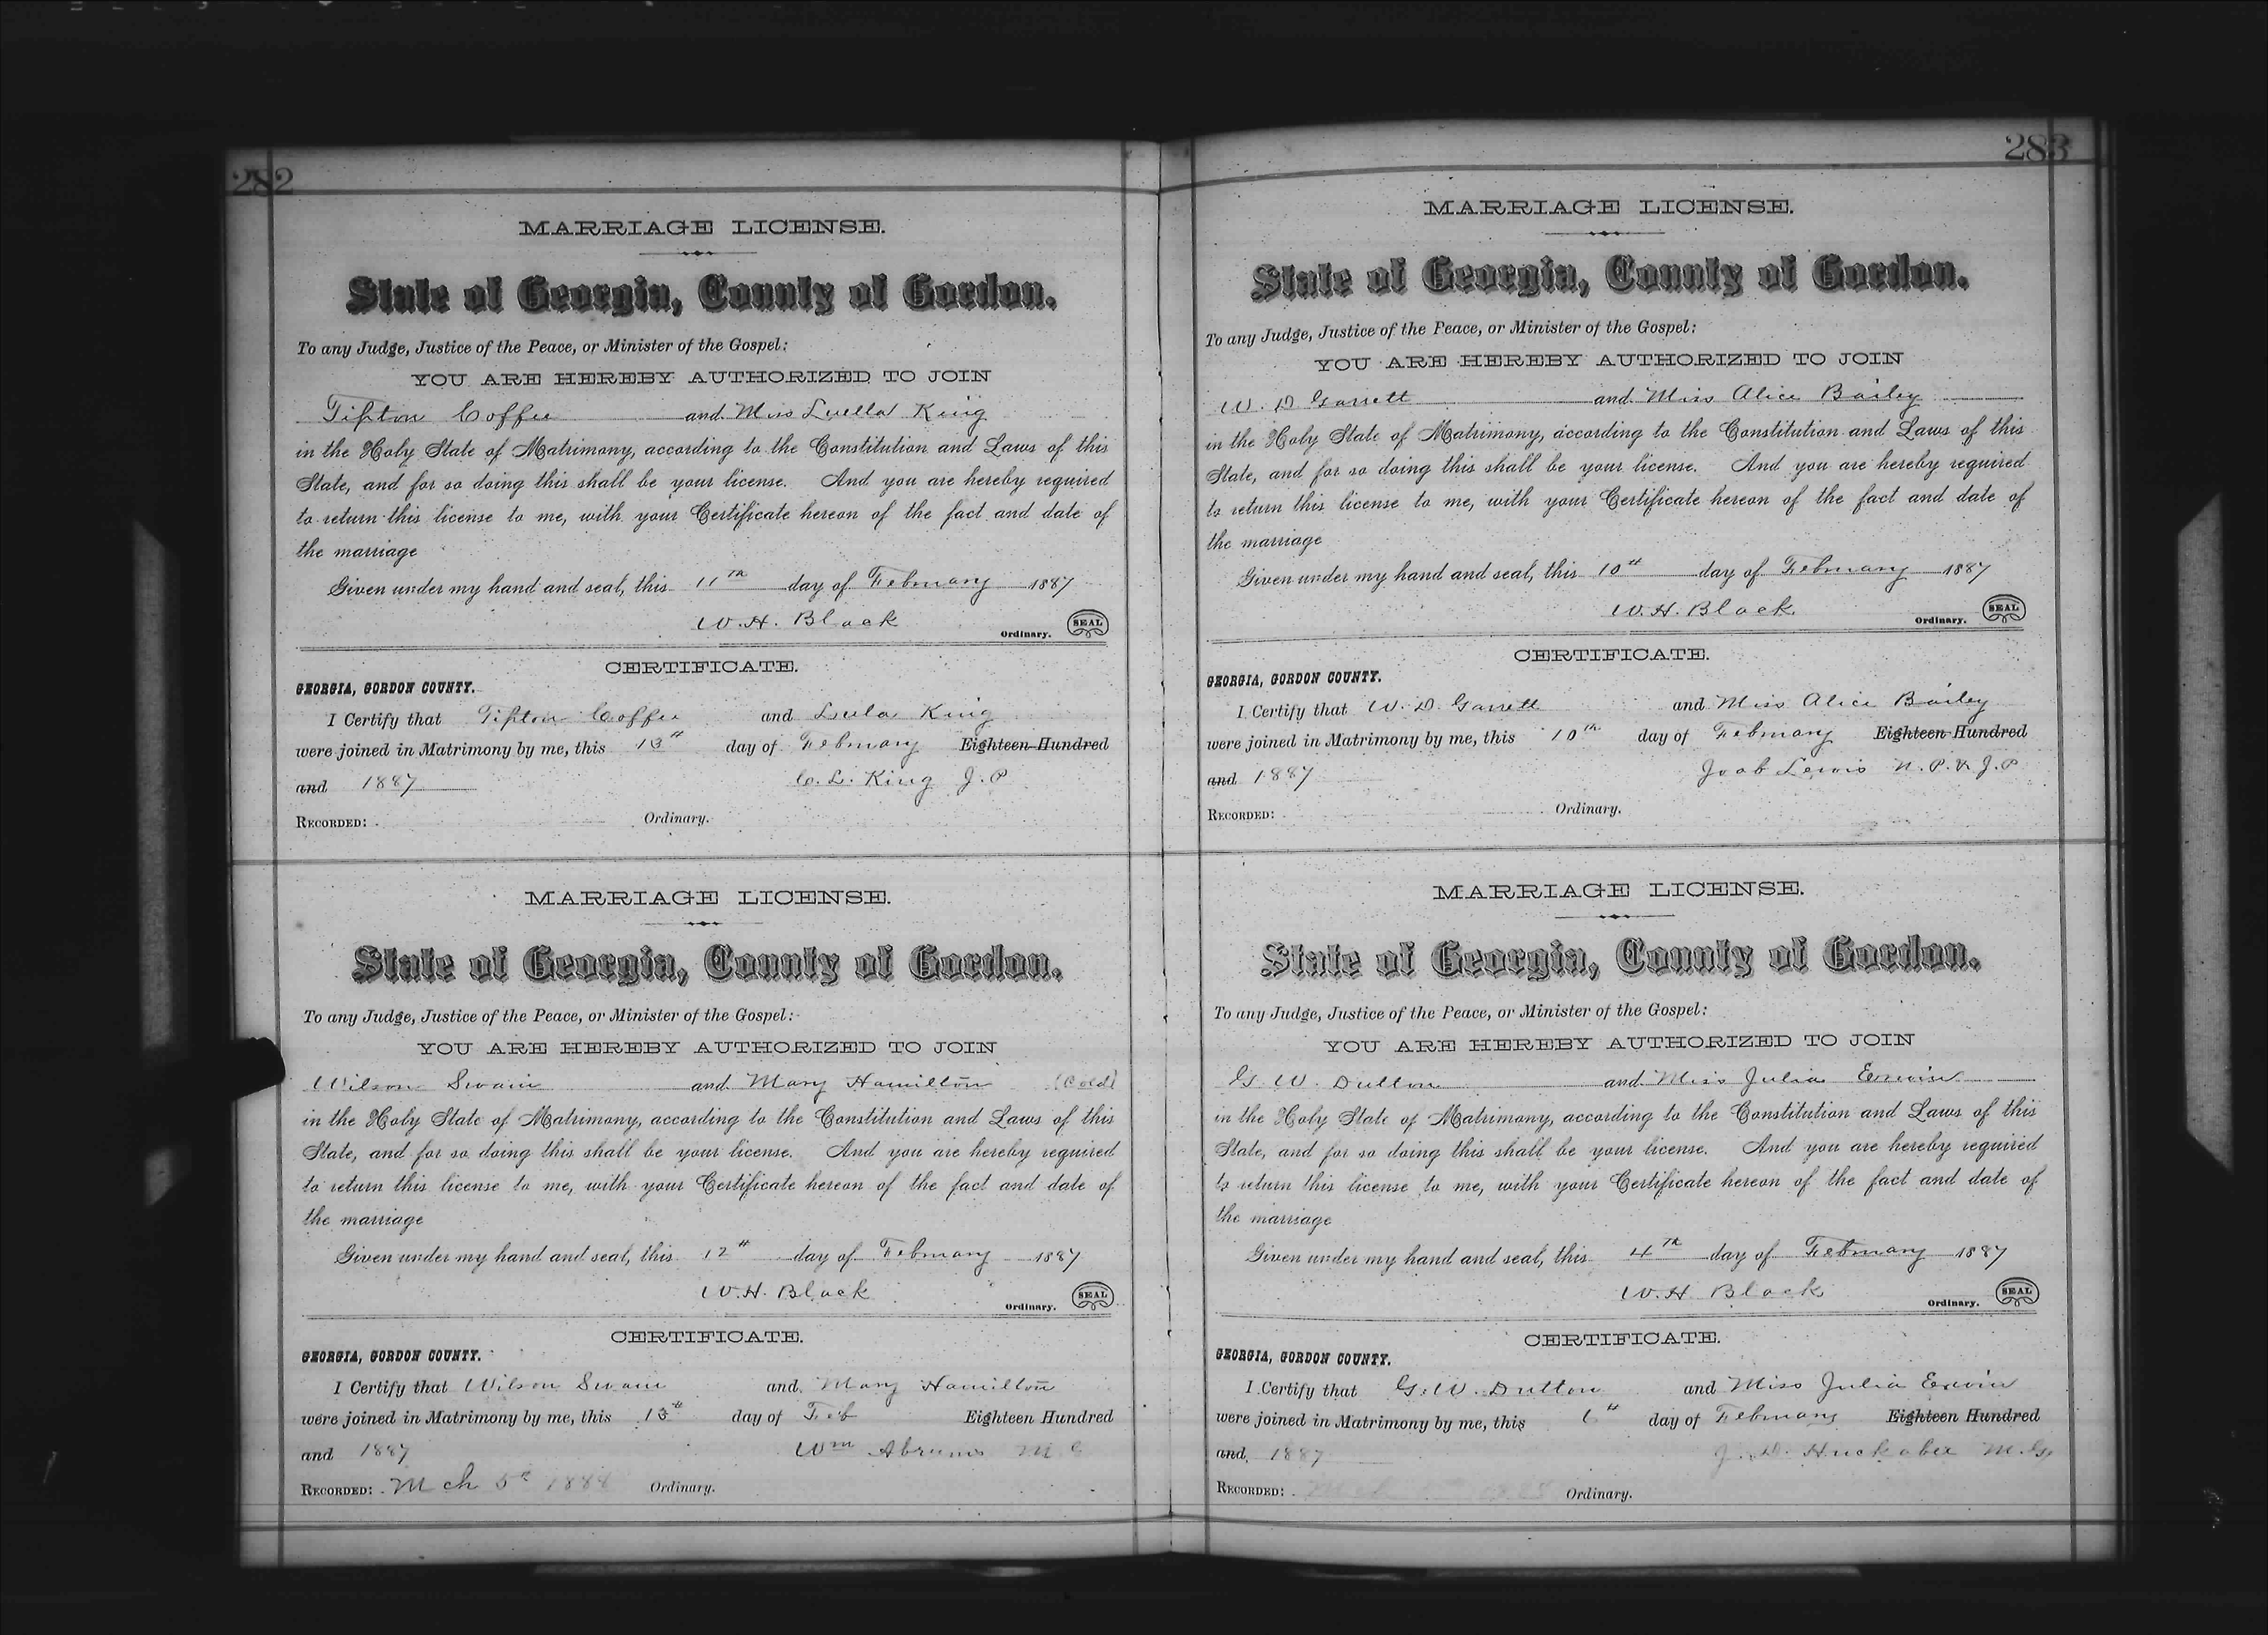 282
MARRIAGE LICENSE.
State of Georgia, County of Gordon.
To any Judge, Justice of the Peace, or Minister of the Gospel:
YOU ARE HEREBY AUTHORIZED TO JOIN
Tipton Coffee and Miss Luella King
in the Holy State of Matrimony, according to the Constitution and Laws of this
State, and for so doing this shall be your license. And you are hereby required
to return this license to me, with your Certificate hereon of the fact and date of
the marriage
Given under my hand and seal, this 11th day of February 1887
W. H. Black
Ordinary. SEAL
CERTIFICATE.
GEORGIA, GORDON COUNTY.
I Certify that Tipton Coffee and Lula King
were joined in Matrimony by me, this 13th day of February Eighteen Hundred
and 1887 C. L. King J. P
RECORDED: Ordinary.
MARRIAGE LICENSE.
State of Georgia, County of Gordon.
To any Judge, Justice of the Peace, or Minister of the Gospel:
YOU ARE HEREBY AUTHORIZED TO JOIN
Wilson Swain and Mary Hamilton (Cold)
in the Holy State of Matrimony, according to the Constitution and Laws of this
State, and for so doing this shall be your license. And you are hereby required
to return this license to me, with your Certificate hereon of the fact and date of
the marriage
Given under my hand and seal, this 12th day of February 1887
W. H. Black
Ordinary. SEAL
CERTIFICATE.
GEORGIA, GORDON COUNTY.
I Certify that Wilson Swain and Mary Hamilton
were joined in Matrimony by me, this 13th day of Feb Eighteen Hundred
and 1887 Wm Abrams M G
RECORDED: Mch 5th 1888 Ordinary.
283
MARRIAGE LICENSE.
State of Georgia, County of Gordon.
To any Judge, Justice of the Peace, or Minister of the Gospel:
YOU ARE HEREBY AUTHORIZED TO JOIN
W. D Garrett and Miss Alice Bailey
in the Holy State of Matrimony, according to the Constitution and Laws of this
State, and for so doing this shall be your license. And you are hereby required
to return this license to me, with your Certificate hereon of the fact and date of
the marriage
Given under my hand and seal, this 10th day of February 1887
W. H. Black
Ordinary. SEAL
CERTIFICATE.
GEORGIA, GORDON COUNTY.
I Certify that W. D. Garrett and Miss Alice Bailey
were joined in Matrimony by me, this 10th day of February Eighteen Hundred
and 1887 Joab Lewis N. P. & J. P
RECORDED: Ordinary.
MARRIAGE LICENSE.
State of Georgia, County of Gordon.
To any Judge, Justice of the Peace, or Minister of the Gospel:
YOU ARE HEREBY AUTHORIZED TO JOIN
G. W. Dutton and Miss Julia Erwin
in the Holy State of Matrimony, according to the Constitution and Laws of this
State, and for so doing this shall be your license. And you are hereby required
to return this license to me, with your Certificate hereon of the fact and date of
the marriage
Given under my hand and seal, this 4th day of February 1887
W. H Black
Ordinary. SEAL
CERTIFICATE.
GEORGIA, GORDON COUNTY.
I Certify that G. W. Dutton and Miss Julia Erwin
were joined in Matrimony by me, this 6th day of February Eighteen Hundred
and 1887 J. D. Huckabee M. G.
RECORDED: Ordinary.